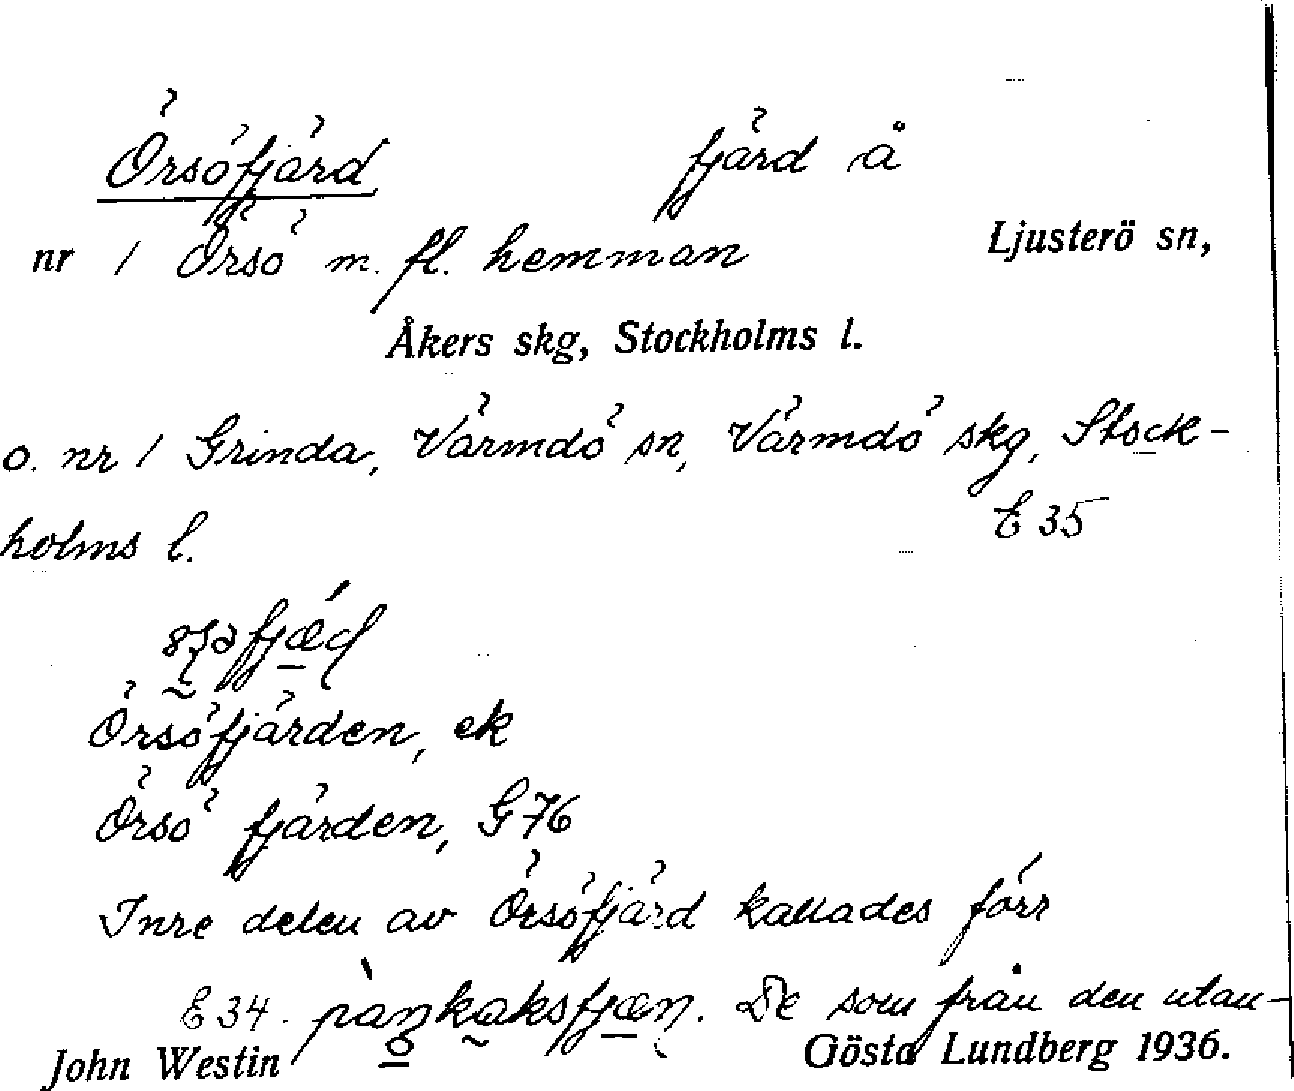 Örsöfjärd fjärd å
nr 1 Örsö m. fl. hemman Ljusterö sn,
Åkers skg, Stockholms l.
o. nr 1 Grinda, Värmdö sn, Värmdö skg, Stock-
holms l. E 35
Örsöfjärden, ek
Örsö fjärden, G 76
Inre delen av Örsöfjärd kallades förr
E 34. De som från den utan-
John Westin Gösta Lundberg 1936.